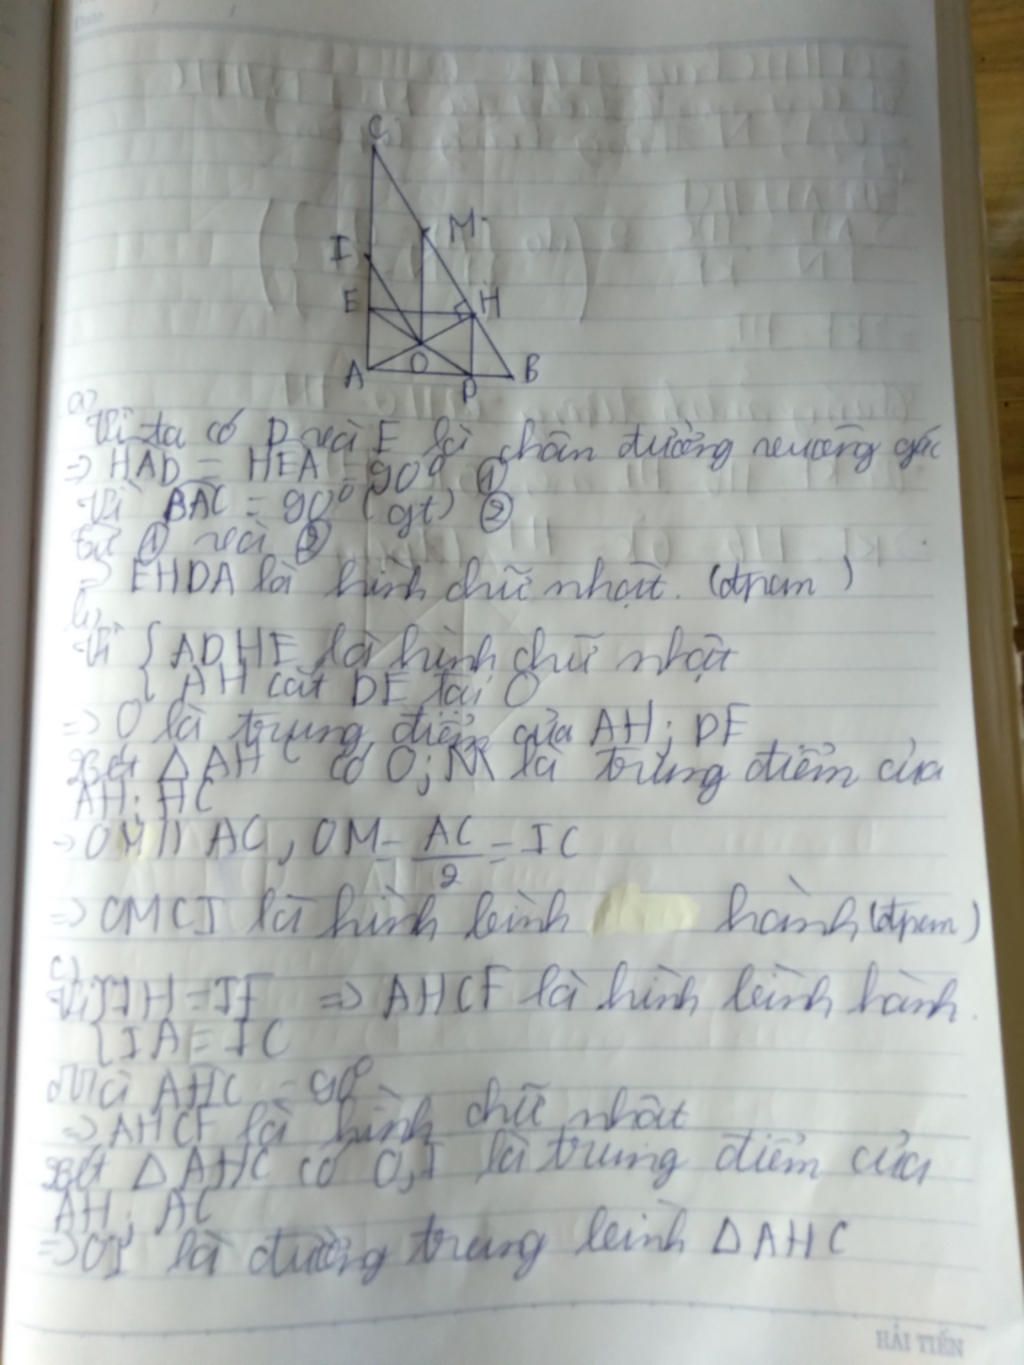 Date
C
I
M
E
H
A
O
D
B
a)
Vì ta có D và E là chân đường vuông góc
=> HAD = HEA = 90° ①
Vì BAC = 90° (gt) ②
Từ ① và ②
=> EHDA là hình chữ nhật. (đpcm)
b)
Vì { ADHE là hình chữ nhật
{ AH cắt DE tại O
=> O là trung điểm của AH; DE
Xét △AHC có O; M là trung điểm của
AH; HC
=> OM // AC, OM = AC/2 = IC
=> OMCI là hình bình hành (đpcm)
c)
Vì { IH = IF => AHCF là hình bình hành.
{ IA = IC
Mà AHC = 90°
=> AHCF là hình chữ nhật
Xét △AHC có O, I là trung điểm của
AH; AC
=> OI là đường trung bình △AHC
HẢI TIẾN